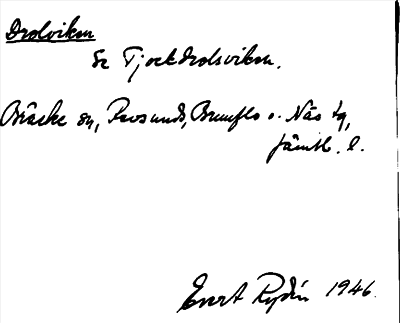 Drolviken
Se Tjockdrolsviken.
Bräcke sn, Revsunds, Brunflo o. Näs tg,
Jämtl. l.
Evert Rydén 1946.